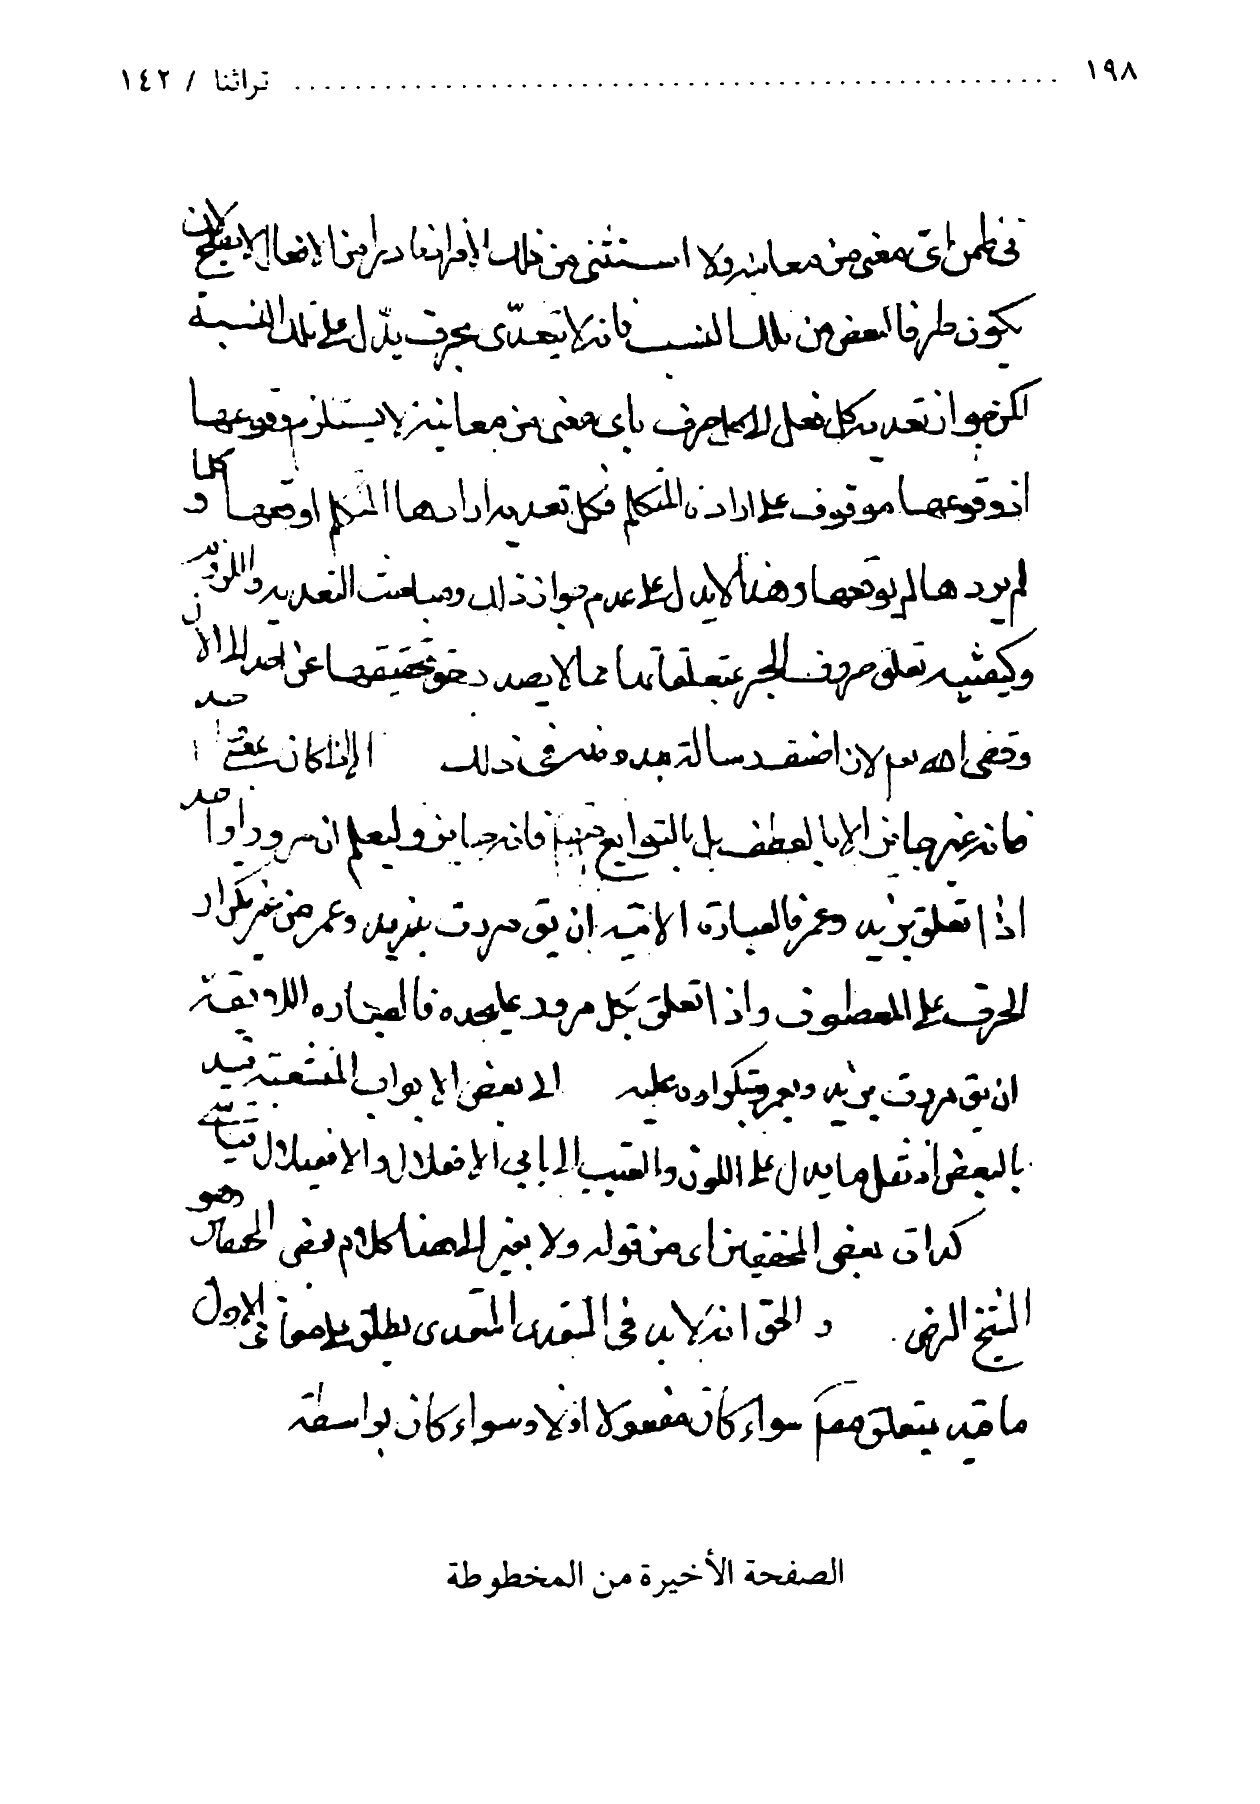 ١٩٨ ........ تراثنا / ١٤٢
في ضمن أي معنى من معانيه ولا استثنى من ذلك إلا فرادنادرا من الافعال لا يصلح لان
يكون طرفا لبعض من تلك النسب فانه لا يتعدّى بحرف يدّل على تلك النسبة
لكن جواز تعدية كل فعل الى كل حرف باي معنى من معانيه لا يستلزم وقوعها
اذ وقوعها موقوف على ارادة المتكلم فكل تعدية ارادها المتكلم اوقعها و كلما
لم يردها لم يوقعها وهذا لا يدل على عدم جواز ذلك ومباحث التعدية واللزوم
وكيفية تعلق حروف الجر بمتعلقاتها مما لا يصدر حق تحقيقها عن احد الى الآن
وفقني الله تع لان اصنف رسالة في ذلك الا اذا كان
فانه غير جايز الا بالعطف بل بالتوابع فانه جايز وليعلم ان مرورا واحد
اذا تعلق بزيد وعمر فالعبارة ان يق مررت بزيد وعمر من غير تكرار
الحرف على المعطوف واذا تعلق بكل مرور عليحده فالعباره اللايقة
ان يق مررت بزيد وبعمر بتكراره عليه الى بعض الابواب المنشعبة
بالبعض اذ نقل ما يدل على اللون والعيب الى بابي الافعلال والافعيلال
كذا في بعض اي من قوله ولا بغير الى هنا كلام بعض وهو
الشيخ الرضي و الحق انه لا بد في المتعدي يطلق على الاول
ما قد يتعلق سواء كان مفعولا او لا وسواء كان بواسطة
الصفحة الأخيرة من المخطوطة